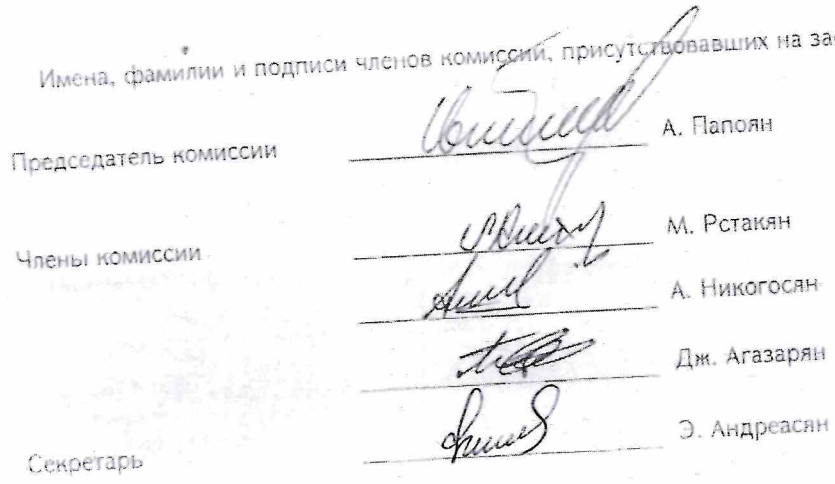 Имена, фамилии и подписи членов комиссии, присутствовавших на за
Председатель комиссии А. Папоян
Члены комиссии М. Рстакян
А. Никогосян
Дж. Агазарян
Секретарь Э. Андреасян